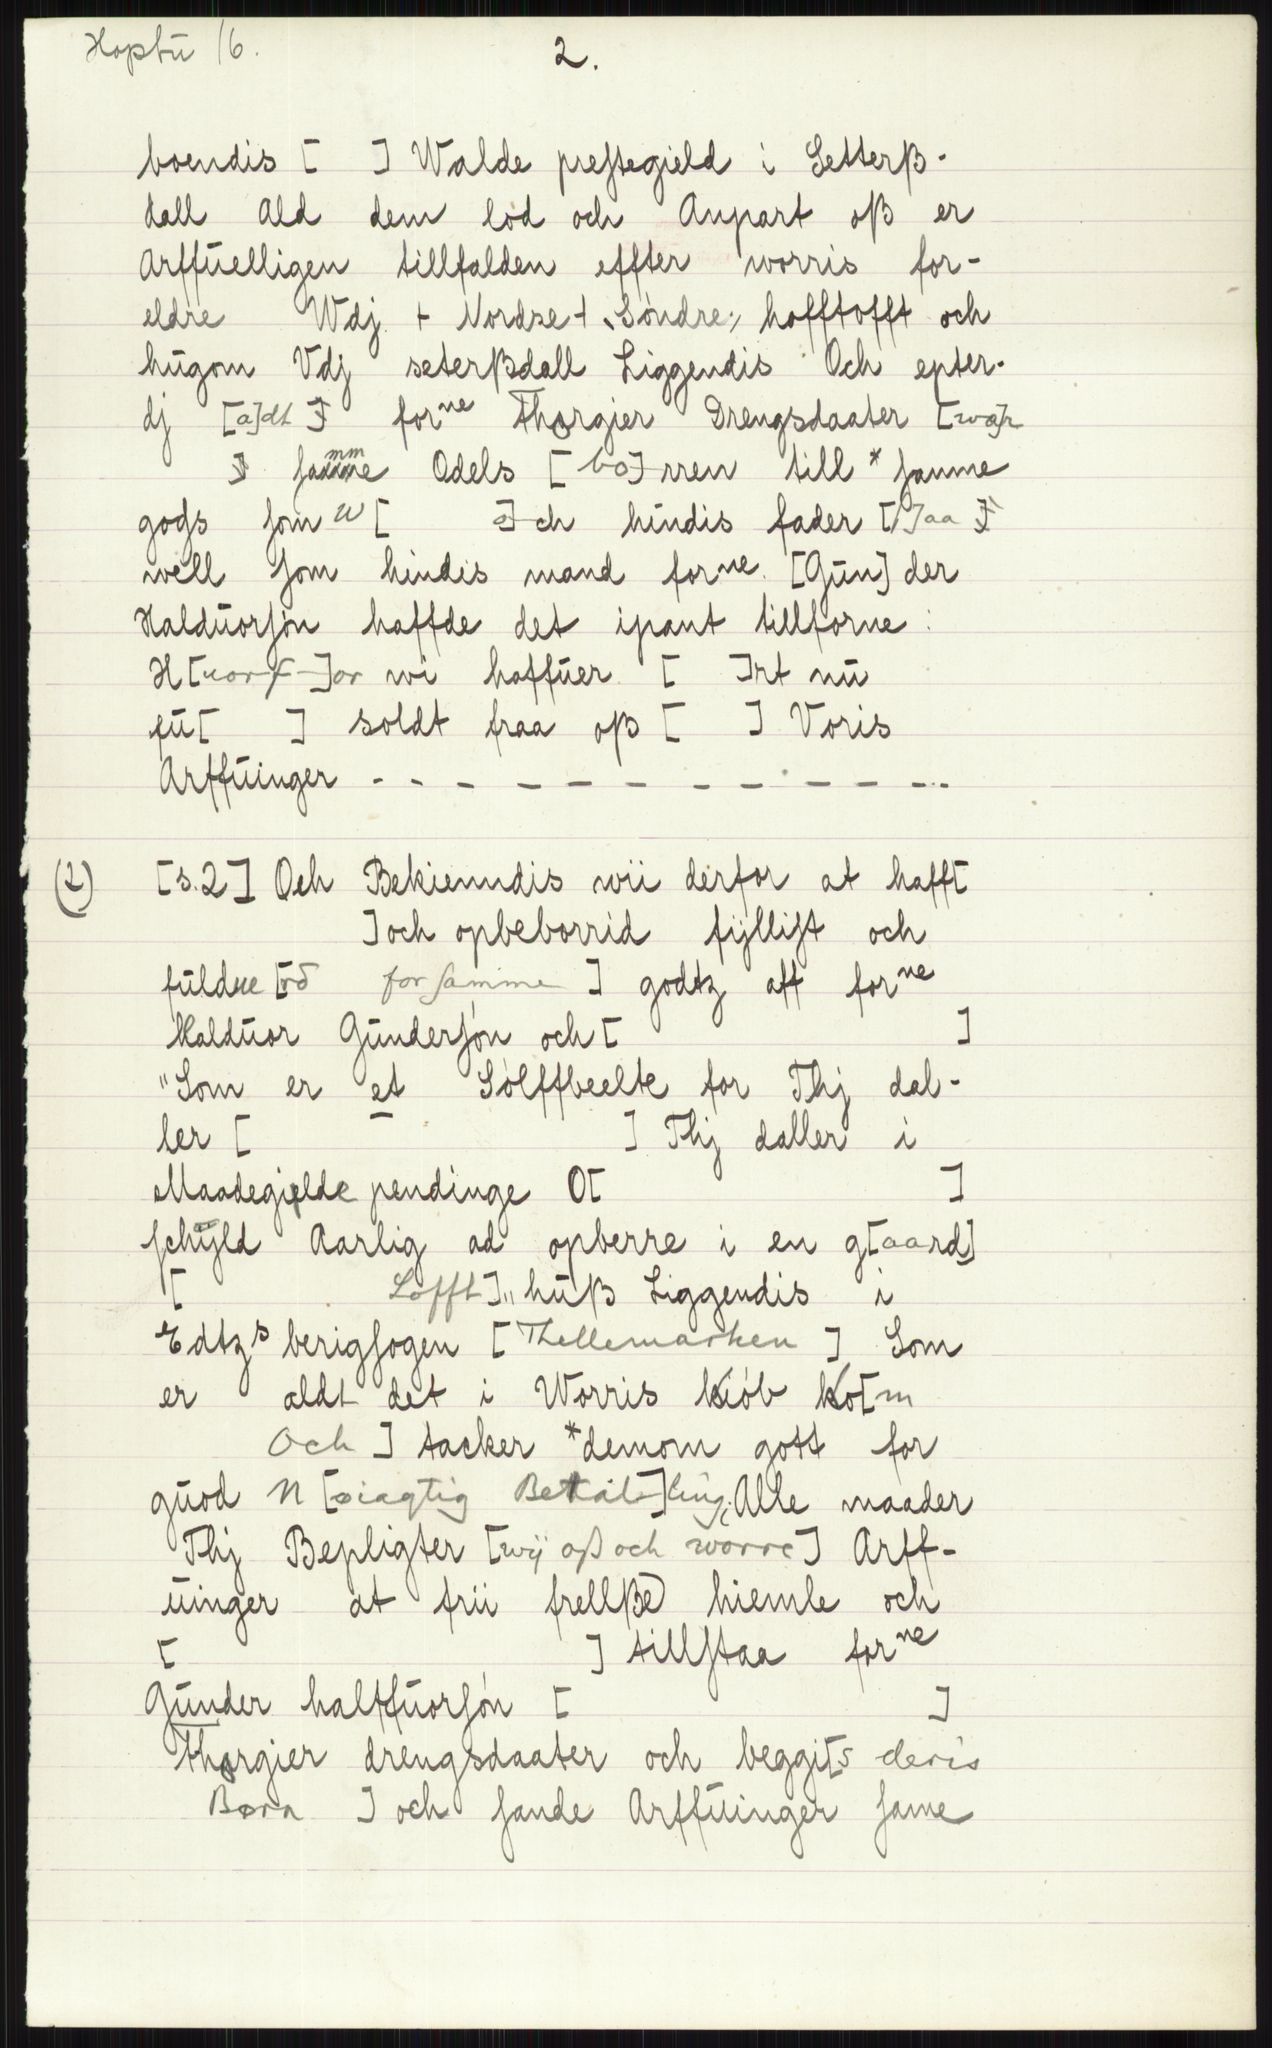 Hoptu 16.
2.
boendis [ ] Walde prestegield i Setterß-
dall Ald dem lod och Anpart oß er
Arffuelligen tillfalden effter worris for-
eldre Wdj + Nordre + Sòndre hofftofft och
hugom Vdj seterßdall Liggendis Och epter-
dj [a]dt forne Thorgier Drengsdaater [wa]r
] samme Odels [bo]rren till * samme
gods som w[ o]ch hindis fader [s]aa
well som hindis mand forne [Gun]der
Halduorsøn haffde det ipant tillforne:
H[uorf]or wi haffuer [ ]rt nu
fu[ ] soldt fraa oß [ ] Voris
Arffuinger - - - - - - - - - - -
(2) [s.2] Och Bekienndis wii derfor at hafft[
] och opbeborrid fyllist och
fuldne [rd for samme ] godtz aff forne
Halduor Gundersøn och [ ]
"Som er et Sòlffbeelte for Thj dal-
ler [ ] Thj daller i
Maadegielde pendinge O[ ]
schyld Aarlig ad opberre i en g[aard]
[ Lofft]" huß Liggendis i
Edtzsberigsogen [Thellemarken ] Som
er aldt det i Worris kiòb ko[m
Och ] tacker *demom gott for
guod N[øiagtig Betal]ling, Alle maader
Thj Bepligter [wij oß och worre] Arff-
uinger at frii frellße hiemle och
[ ] tillstaa forne
Gunder halffuorsøn [ ]
Thorgier drengsdaater och beggi[s deris
Børn ] och sande Arffuinger same